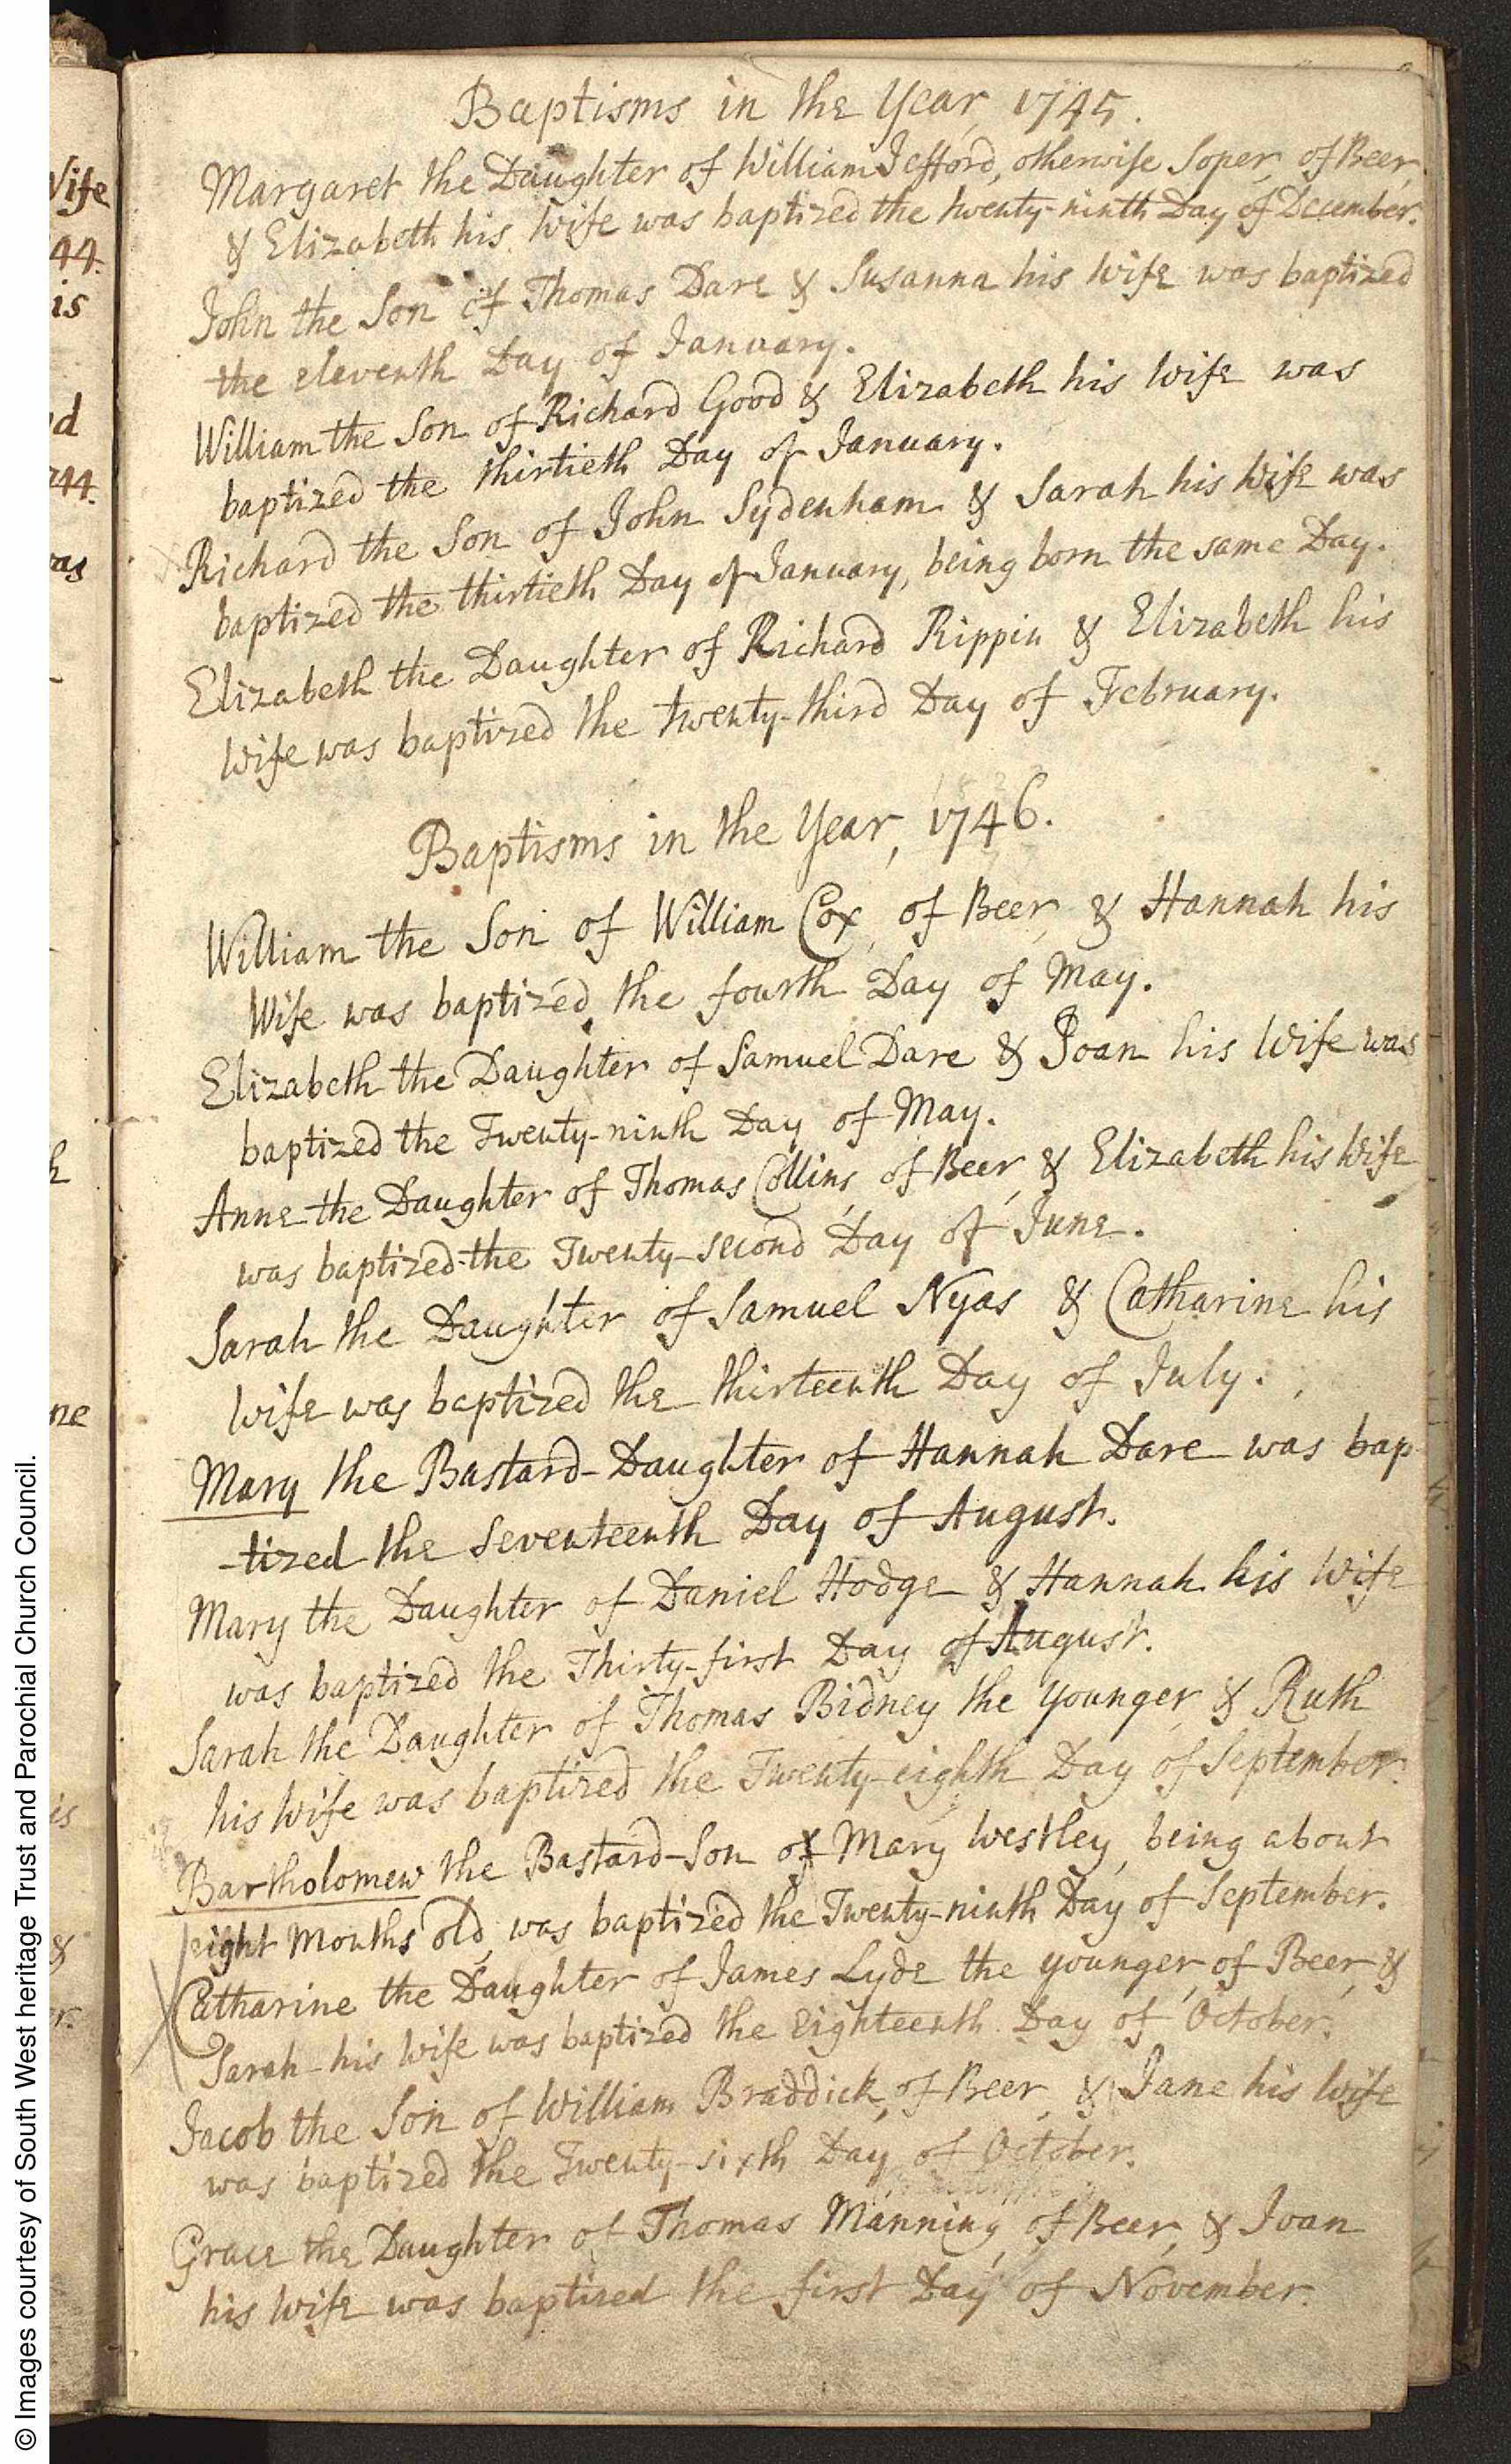 Baptisms in the Year, 1745.
Margaret the Daughter of William Jefford, otherwise Soper, of Beer,
& Elizabeth his Wife was baptized the twenty-ninth Day of December.
John the Son of Thomas Dare & Susanna his Wife was baptized
the eleventh Day of January.
William the Son of Richard Good & Elizabeth his Wife was
baptized the thirtieth Day of January.
Richard the Son of John Sydenham & Sarah his Wife was
baptized the thirtieth Day of January, being born the same Day.
Elizabeth the Daughter of Richard Rippin & Elizabeth his
Wife was baptized the twenty-third Day of February.
Baptisms in the Year, 1746.
William the Son of William Cox, of Beer, & Hannah his
Wife was baptized the fourth Day of May.
Elizabeth the Daughter of Samuel Dare & Joan his Wife was
baptized the Twenty-ninth Day of May.
Anne the Daughter of Thomas Collins, of Beer, & Elizabeth his Wife
was baptized the Twenty-second Day of June.
Sarah the Daughter of Samuel Nyas & Catharine his
Wife was baptized the thirteenth Day of July.
Mary the Bastard-Daughter of Hannah Dare was bap
-tized the Seventeenth Day of August.
Mary the Daughter of Daniel Hodge & Hannah his Wife
was baptized the Thirty-first Day of August.
Sarah the Daughter of Thomas Bidney the Younger, & Ruth
his Wife was baptized the Twenty-eighth Day of September.
Bartholomew the Bastard-Son of Mary Westley, being about
eight Months old, was baptized the Twenty-ninth Day of September.
Catharine the Daughter of James Lyde the younger, of Beer, &
Sarah his Wife was baptized the Eighteenth Day of October.
Jacob the Son of William Braddick, of Beer, & Jane his Wife
was baptized the Twenty-sixth Day of October.
Grace the Daughter of Thomas Manning, of Beer, & Joan
his Wife was baptized the first Day of November.
Wife
44.
is
744.
was
ne
is
&
r.
© Images courtesy of South West heritage Trust and Parochial Church Council.